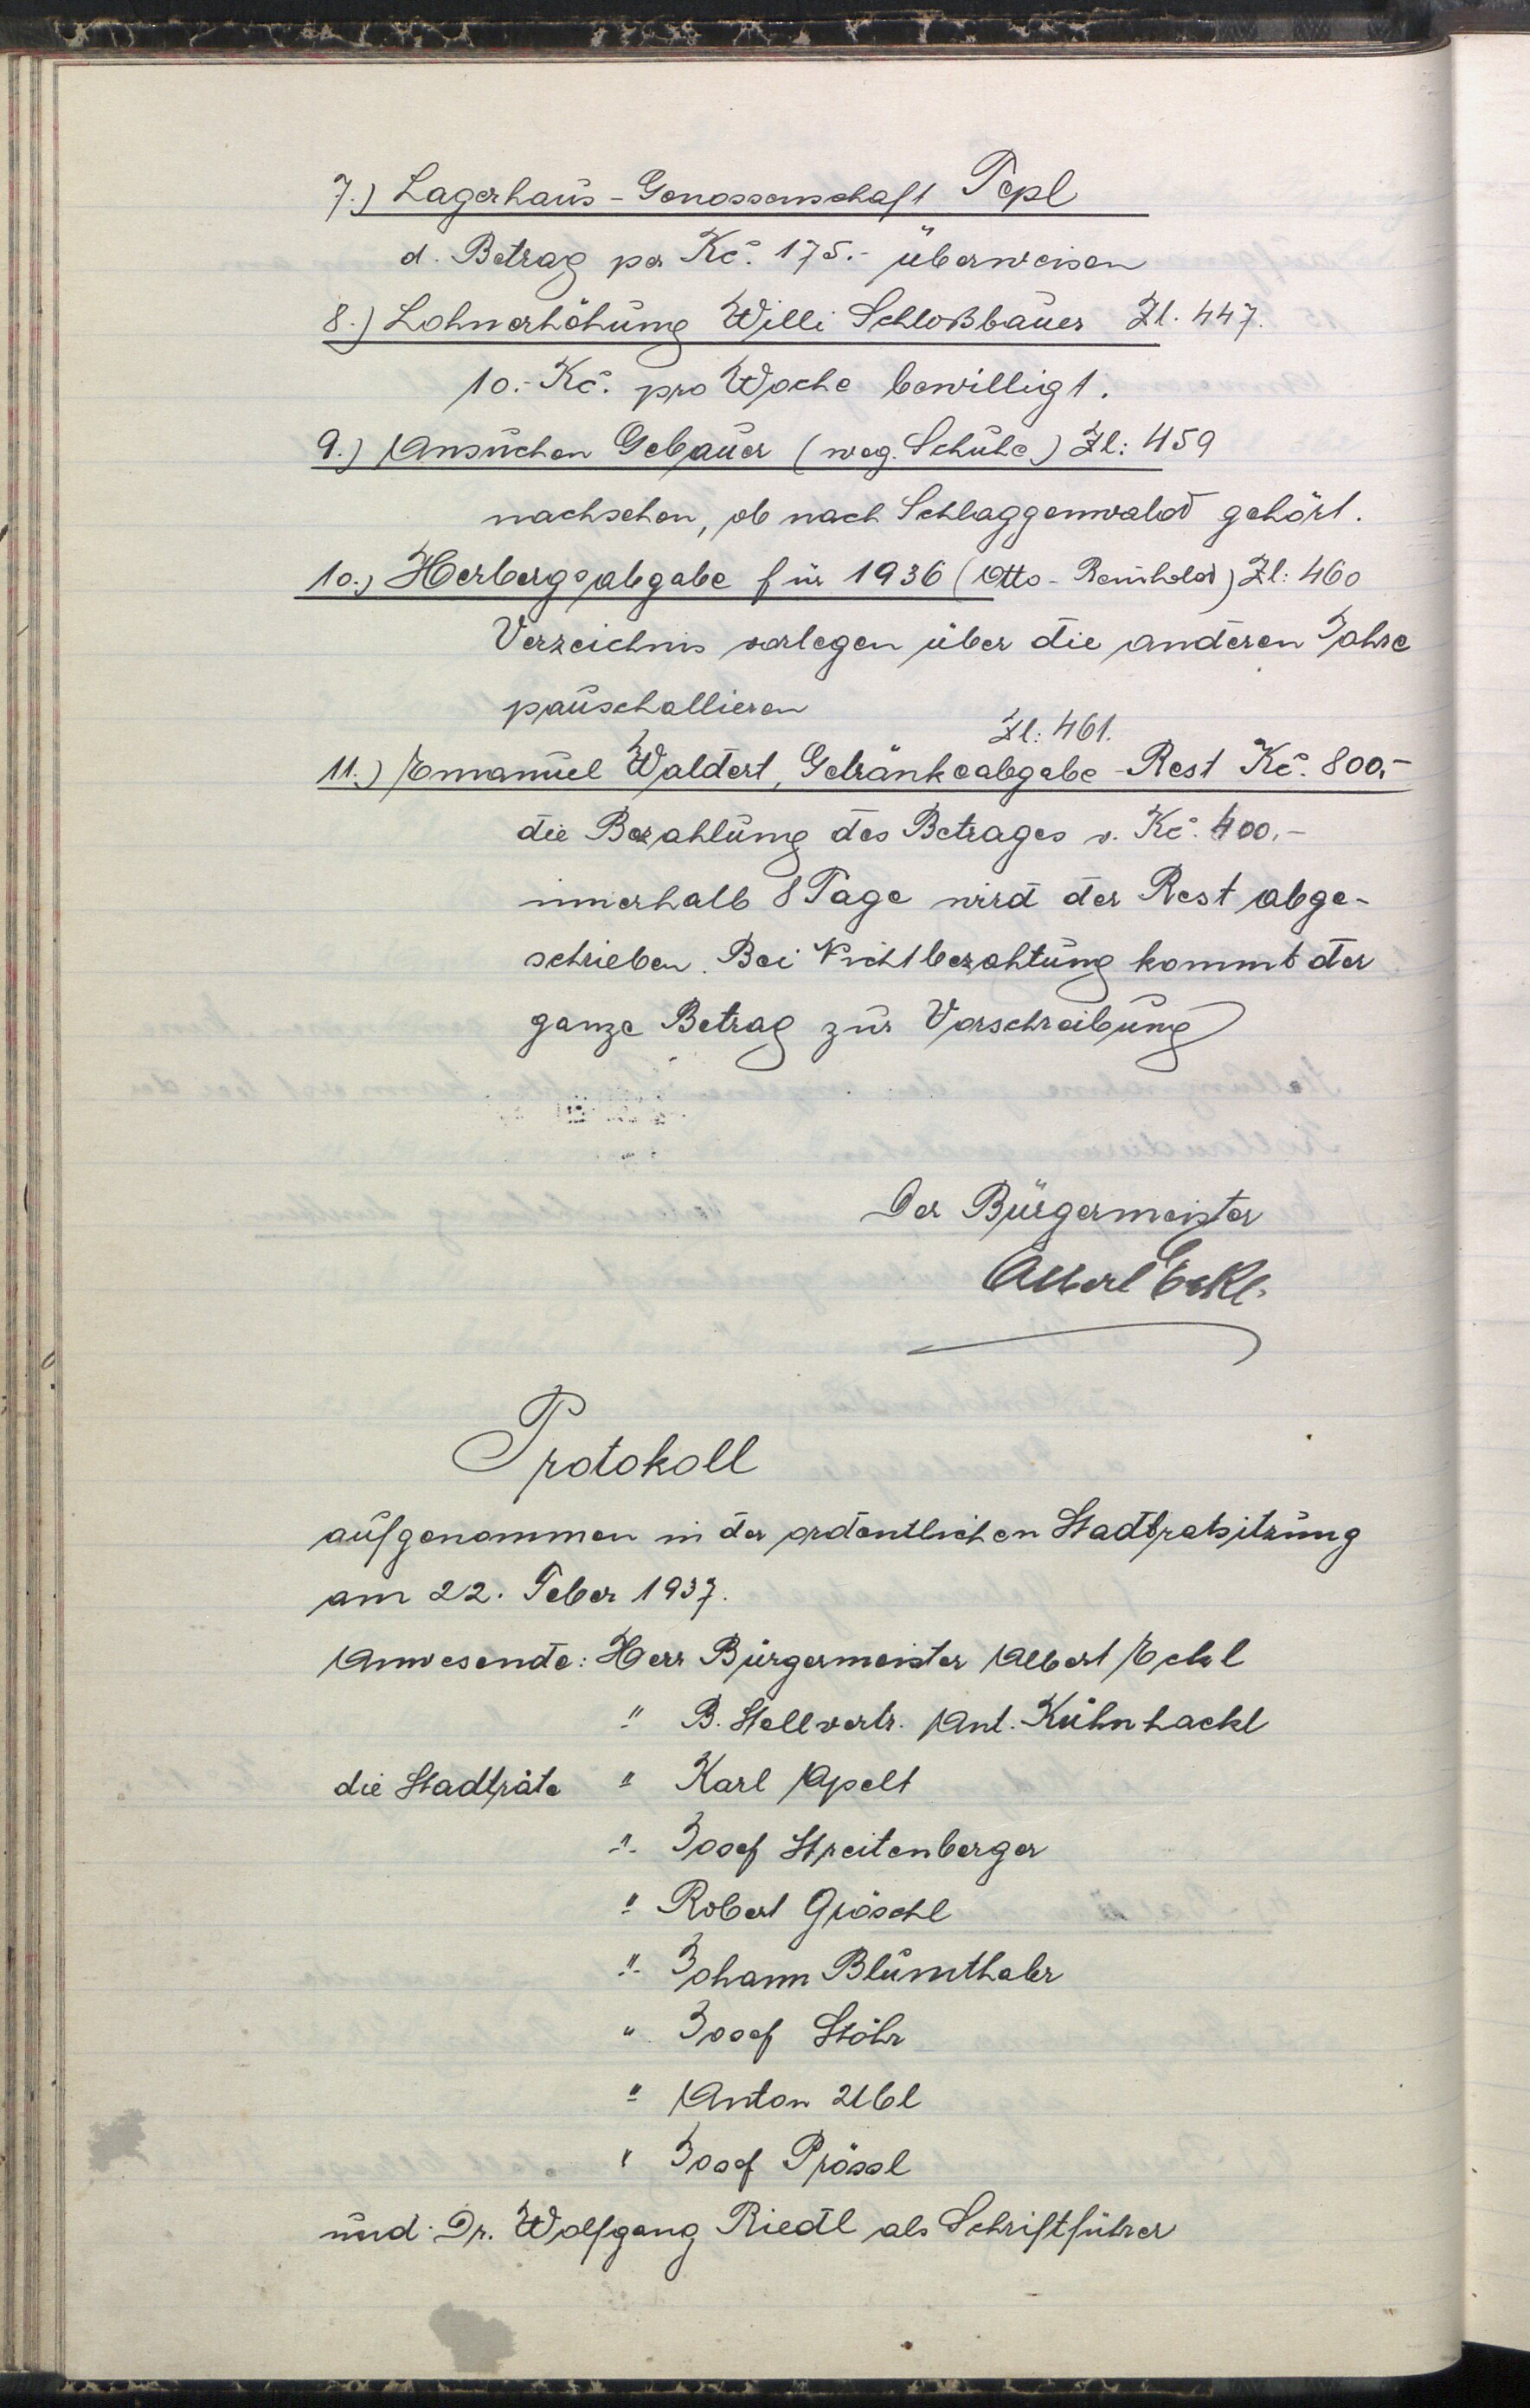 7.) Lagerhaus-Genossenschaft Tepl
d. Betrag per Kč. 175.- überweisen
8.) Lohnerhöhung Willi Schloßbauer Zl. 447.
10.- Kč. pro Woche bewilligt.
9.) Ansuchen Gebauer (weg. Schuhe) Zl: 459
nachsehen, ob nach Schlaggenwald gehört.
10.) Herbergsabgabe für 1936 (Otto-Reinhold) Zl: 460
Verzeichnis vorlegen über die anderen Jahre
pauschallieren
Zl: 461.
11.) Emanuel Waldert, Getränkeabgabe-Rest Kč. 800,-
die Bezahlung des Betrages v. Kč. 400.-
innerhalb 8 Tage wird der Rest abge-
schrieben. Bei Nichtbezahlung kommt der
ganze Betrag zur Vorschreibung
Der Bürgermeister
Albert Eckl.
Protokoll
aufgenommen in der ordentlichen Stadtratsitzung
am 22. Feber 1937.
Anwesende: Herr Bürgermeister Albert Eckl
" B. Stellvertr. Ant. Kühnhackl
die Stadträte " Karl Apelt
" Josef Streitenberger
" Robert Gröschl
" Johann Blumthaler
" Josef Stöhr
" Anton Ubl
" Josef Prössl
und Dr. Wolfgang Riedl als Schriftführer